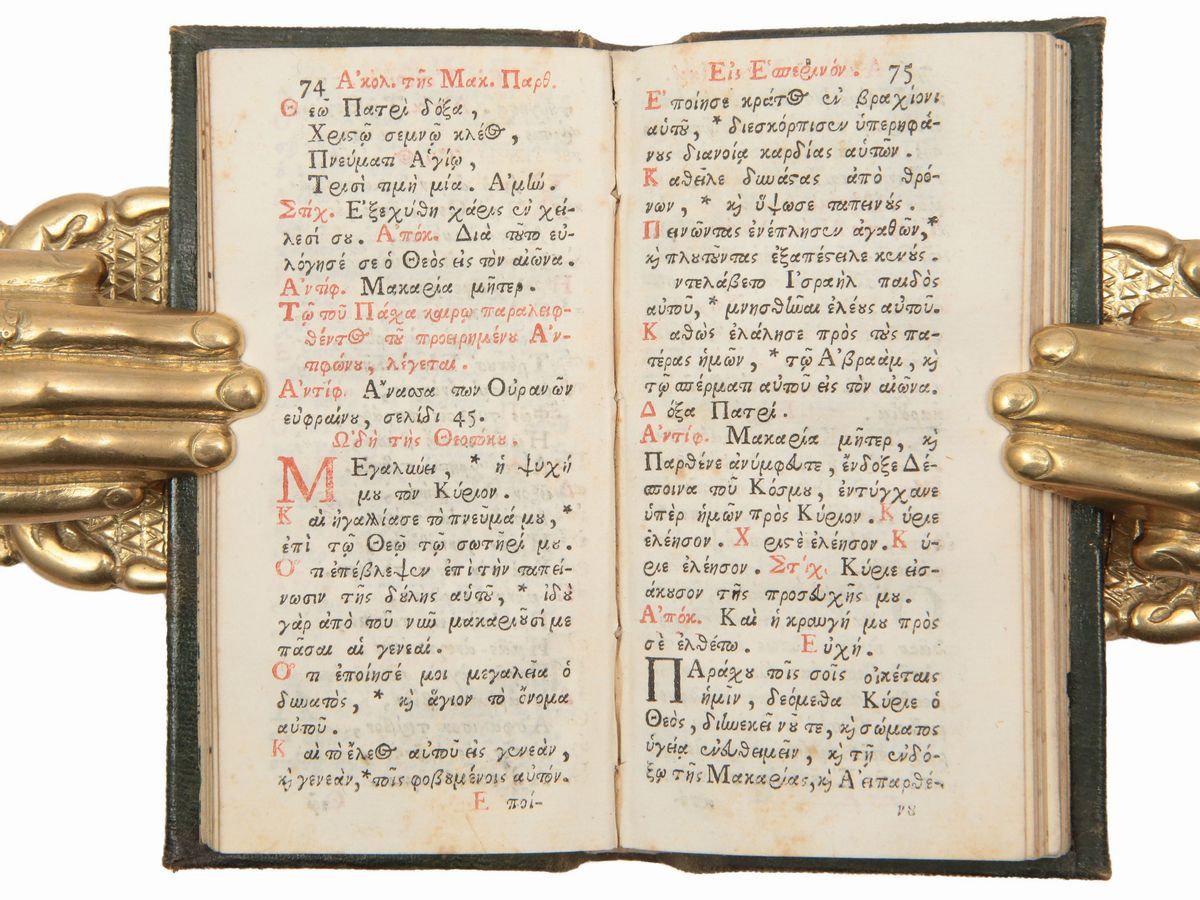 74 Ἀκολ. τῆς Μακ. Παρθ.
Θεῷ Πατρὶ δόξα,
Χριστῷ σεμνῷ κλέος,
Πνεύματι Ἁγίῳ,
Τρισὶ τιμὴ μία. Ἀμήν.
Στίχ. Ἐξεχύθη χάρις ἐν χεί-
λεσί σου. Ἀπόκ. Διὰ τοῦτο εὐ-
λόγησέ σε ὁ Θεὸς εἰς τὸν αἰῶνα.
Ἀντίφ. Μακαρία μῆτερ.
Τῷ τοῦ Πάσχα καιρῷ παραλειφ-
θέντος τοῦ προειρημένου Ἀν-
τιφώνου, λέγεται.
Ἀντίφ. Ἄνασσα των Οὐρανῶν
εὐφραίνου, σελίδι 45.
Ὠδὴ τῆς Θεοτόκου.
Μεγαλύνει, * ἡ ψυχή
μου τὸν Κύριον.
Καὶ ἠγαλλίασε τὸ πνεῦμά μου, *
ἐπὶ τῷ Θεῷ τῷ σωτῆρί μου.
Ὅτι ἐπέβλεψεν ἐπὶ τὴν ταπεί-
νωσιν τῆς δούλης αὑτοῦ, * ἰδοὺ
γὰρ ἀπὸ τοῦ νῦν μακαριοῦσί με
πᾶσαι αἱ γενεαί.
Ὅτι ἐποίησέ μοι μεγαλεῖα ὁ
δυνατὸς, * καὶ ἅγιον τὸ ὄνομα
αὐτοῦ.
Καὶ τὸ ἔλεος αὐτοῦ εἰς γενεὰν,
καὶ γενεὰν, * τοῖς φοβουμένοις αὐτόν.
Ε ποί-
Εἰς Ἑσπερινόν. 75
Ἐποίησε κράτος ἐν βραχίονι
αὑτοῦ, * διεσκόρπισεν ὑπερηφά-
νους διανοίᾳ καρδίας αὐτῶν.
Καθεῖλε δυνάστας ἀπὸ θρό-
νων, * καὶ ὕψωσε ταπεινούς.
Πεινῶντας ἐνέπλησεν ἀγαθῶν, *
καὶ πλουτοῦντας ἐξαπέστειλε κενούς.
ντελάβετο Ἰσραὴλ παιδὸς
αὐτοῦ, * μνησθῆναι ἐλέους αὐτοῦ.
Καθὼς ἐλάλησε πρὸς τοὺς πα-
τέρας ἡμῶν, * τῷ Ἀβραὰμ, καὶ
τῷ σπέρματι αὐτοῦ εἰς τὸν αἰῶνα.
Δόξα Πατρί.
Ἀντίφ. Μακαρία μῆτερ, καὶ
Παρθένε ἀνύμφευτε, ἔνδοξε Δέ-
σποινα τοῦ Κόσμου, ἐντύγχανε
ὑπὲρ ἡμῶν πρὸς Κύριον. Κύριε
ἐλέησον. Χριστὲ ἐλέησον. Κύ-
ριε ἐλέησον. Στίχ. Κύριε εἰσ-
άκουσον τῆς προσευχῆς μου.
Ἀπόκ. Καὶ ἡ κραυγή μου πρὸς
σὲ ἐλθέτω. Εὐχή.
Παράσχου τοῖς σοῖς οἰκέταις
ἡμῖν, δεόμεθα Κύριε ὁ
Θεὸς, διηνεκεῖ νοῦ τε, καὶ σώματος
ὑγείᾳ ἐνευθυμεῖν, καὶ τῇ ἐνδό-
ξῳ τῆς Μακαρίας, καὶ Ἀειπαρθέ-
νου